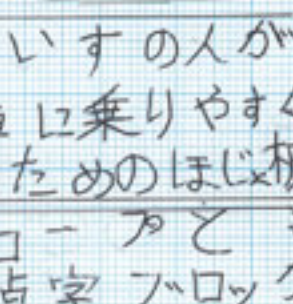 いすの人が
に乗りやすく
ためのほじょ板
ロープと
点字ブロック